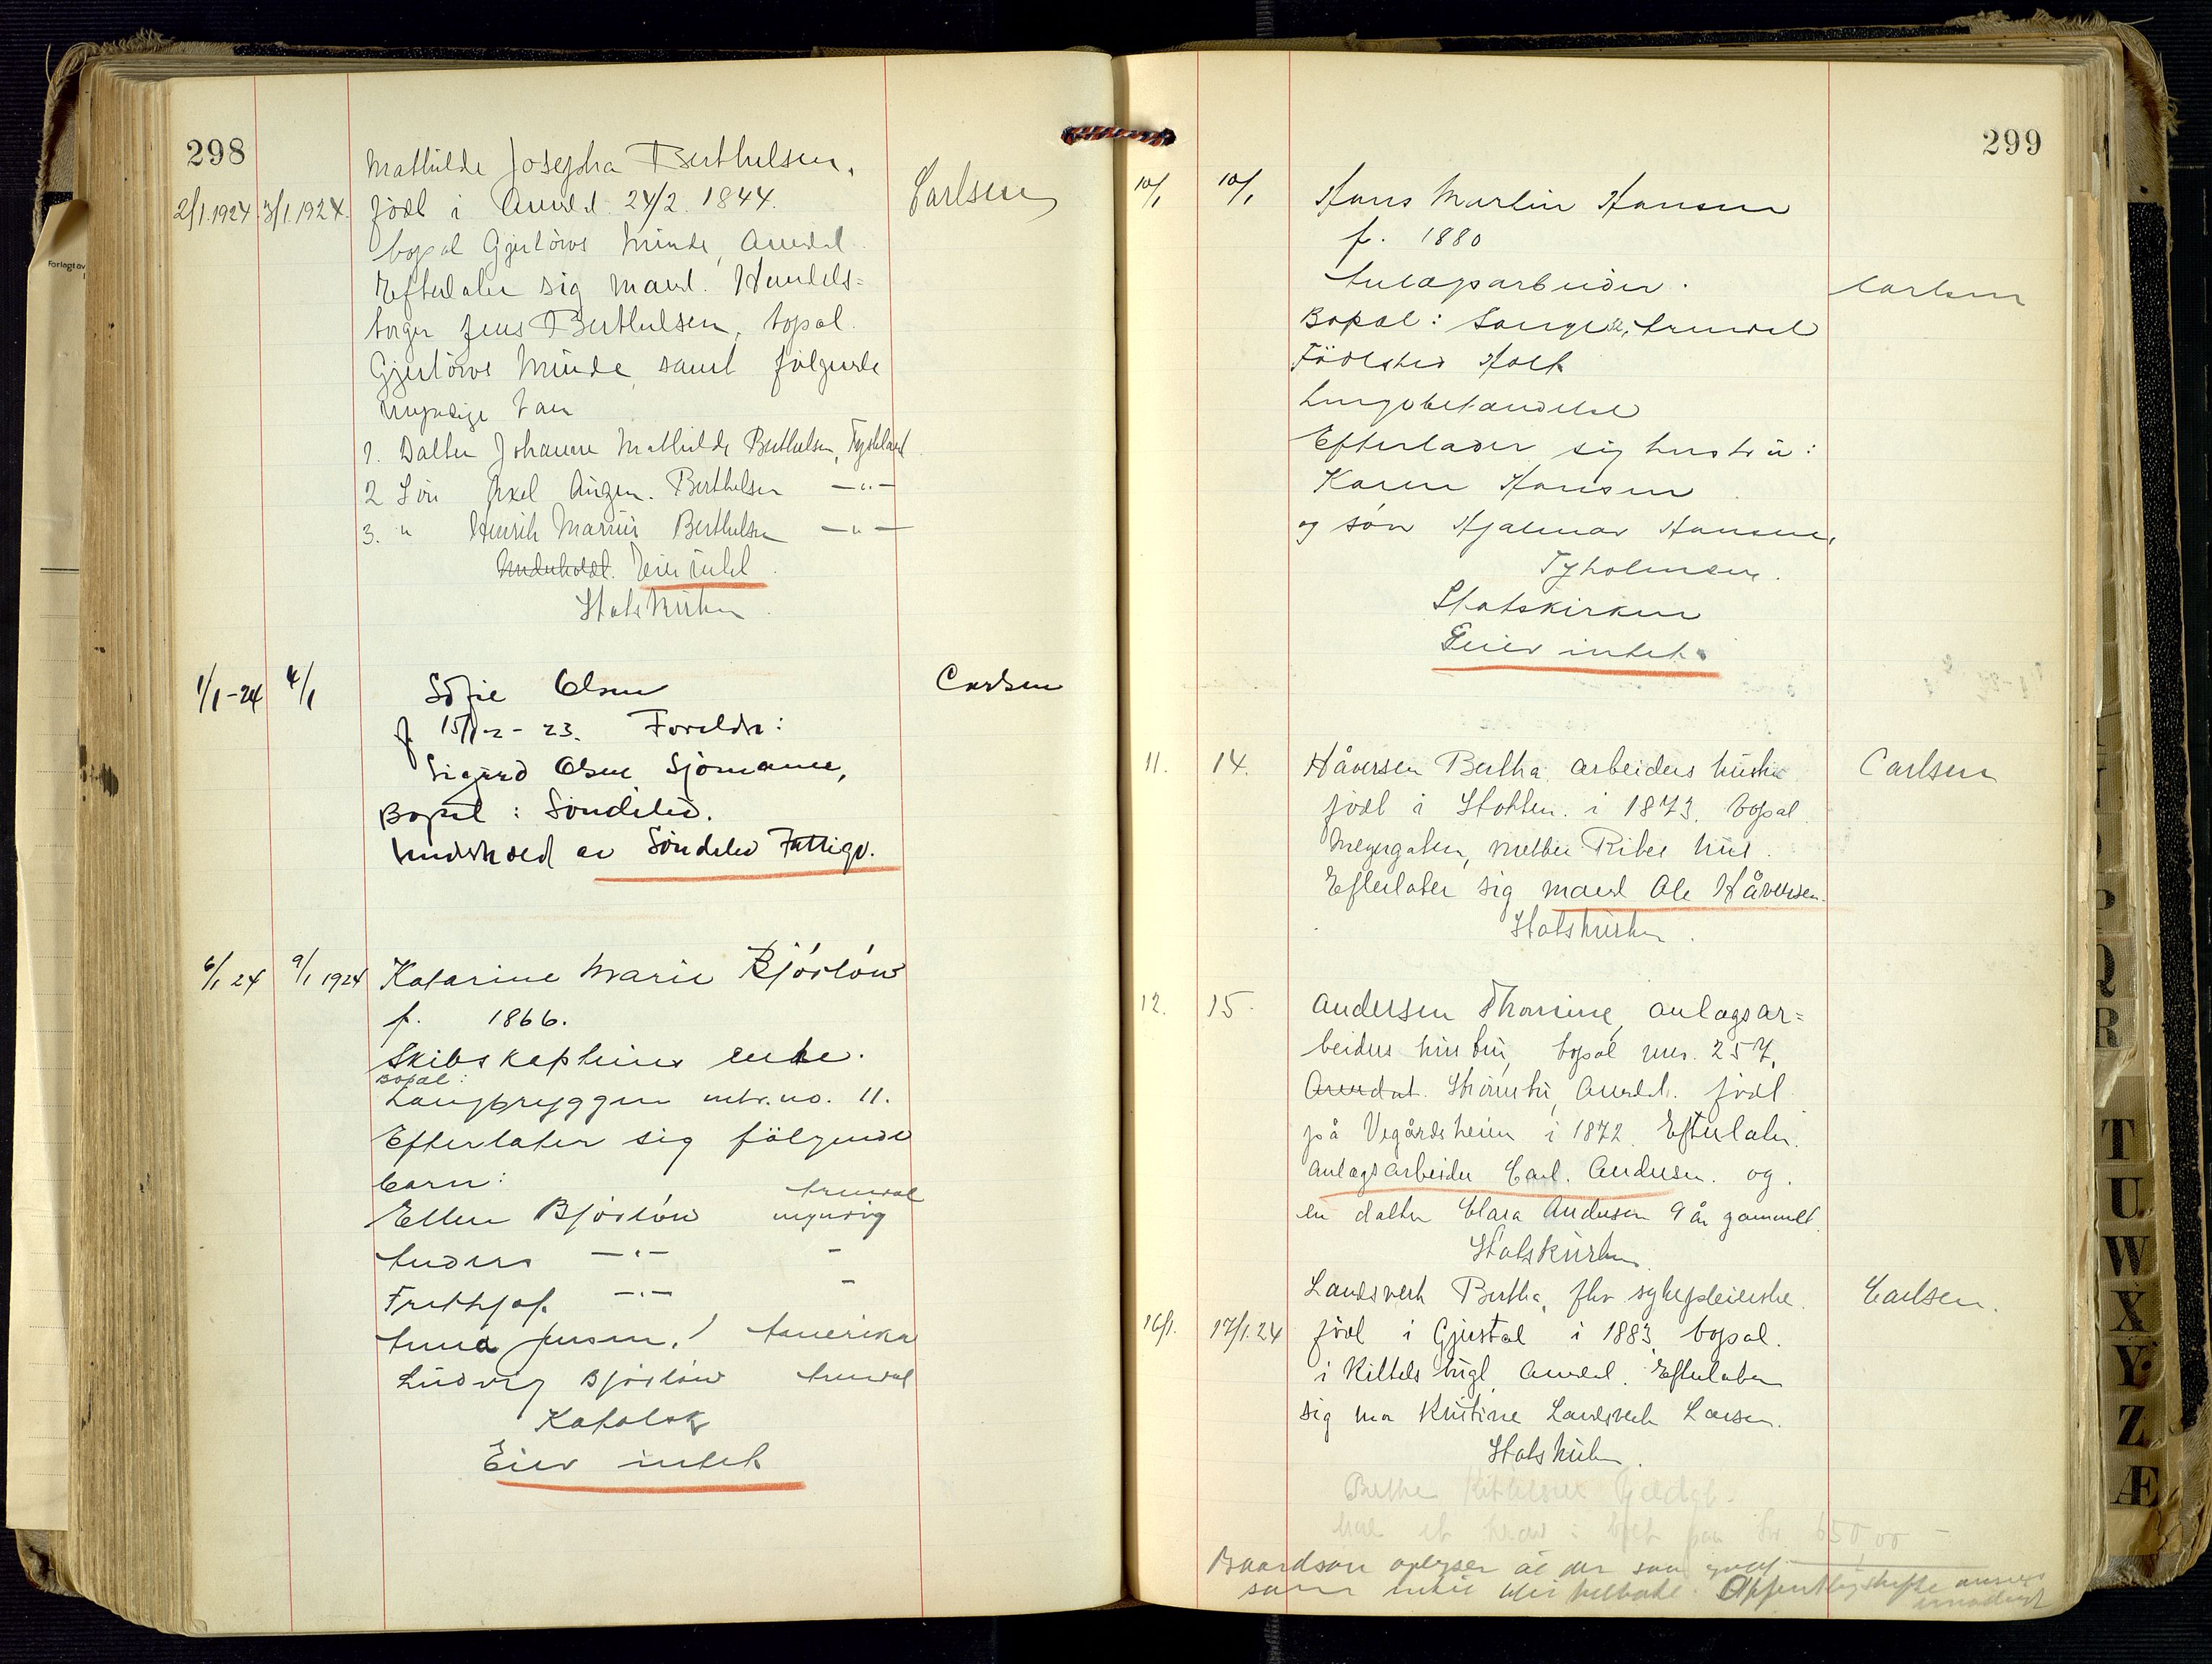 298
Mathilde Josepha Berthelsen,
2/1.1924. 3/1.1924. født i Arendal 24/2. 1844. Carlsen
bopæl Gjerløws Minde, Arendal.
Efterlater sig mand. Handels=
borger Jens Berthelsen, bopæl.
Gjerløws Minde samt følgende
myndige barn
1. Datter Johanne Mathilde Berthelsen, Tyskland
2 Søn Axel August. Berthelsen —"—
3. " Henrik Marius Berthelsen —"—
Underholdt. Eier intet.
Statskirken.
1/1-24 4/1 Sofie Olsen Carlsen
f. 15/12-23. Foreldre:
Sigurd Olsen Sjømann,
Bopæl: Søndeled.
Underhold av Søndeled Fattigv.
6/1 24 9/1 1924 Katarine Marie Bjørløw
f. 1866.
Skibskapteins enke.
Bopæl:
Langbryggen mtr.no. 11.
Efterlater sig følgende
barn:
Arendal
Ellen Bjørløw myndig
Anders —"— -
Frithjof. —"— -
Anna Jensen. Amerika
Ludvig Bjørløw Arendal
Katolsk
Eier intet
299
10/1 10/1 Hans Martin Hansen
f. 1880
Anlægsarbeider. Carlsen
Bopæl: Songe, Arendal
Fødested Holt
Lungebetændelse
Efterlader sig hustru:
Karen Hansen
og søn Hjalmar Hansen,
Tyholmen.
Statskirken
Eier intet.
11. 14. Håversen Bertha, arbeiders hustru Carlsen
født i Stokken. i 1873. bopæl.
Meyergaten, Ribes hus.
Efterlater sig mand Ole Håversen.
Statskirken.
12. 15. Andersen Thomine, anlægsar=
beiders hustru, bopæl mnr. 257,
Arendal. Strømsbu, Arendal. født
på Vegårdsheien i 1872. Efterlater.
anlægsarbeider Carl. Andersen. og.
en datter Clara Andersen 9 år gammelt.
Statskirken.
Landsverk Bertha, fhv sykepleierske. Carlsen.
16/1. 17/1.24 født i Gjerstad i 1883. bopæl.
i Kittels bygd, Arendal. Efterlater
sig mor Kristine Landsverk Larsen.
Statskirken.
Berthe Kittelsen
har et krav i boet paa kr 650,00
Baardson oplyser at der
som intet blir tilbake. Offentlig skifte ansees
unødvendig